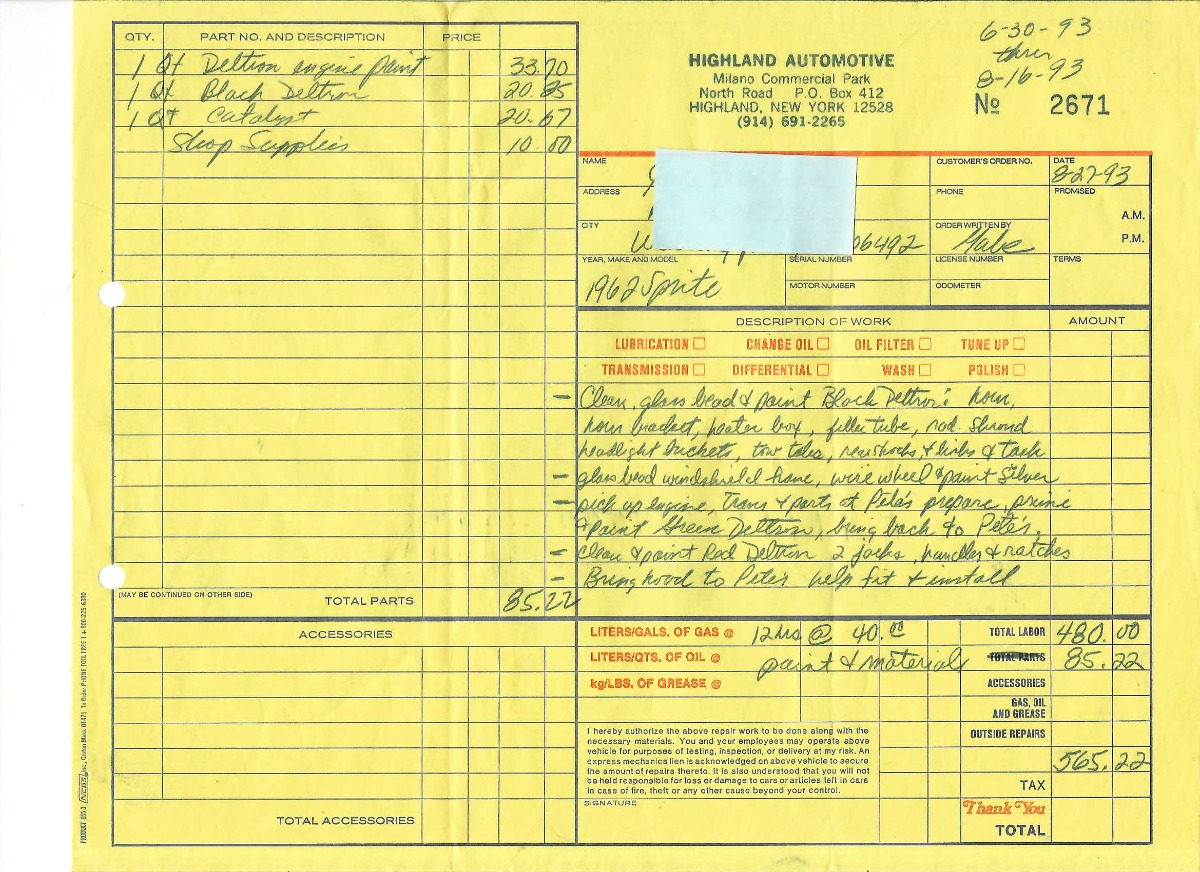 QTY. PART NO. AND DESCRIPTION PRICE
1 Qt Deltron engine paint 33.70
1 Qt Black Deltron 20.85
1 QT Catalyst 20.67
Shop Supplies 10.00
(MAY BE CONTINUED ON OTHER SIDE) TOTAL PARTS 85.22
ACCESSORIES
TOTAL ACCESSORIES
HIGHLAND AUTOMOTIVE
Milano Commercial Park
North Road P.O. Box 412
HIGHLAND, NEW YORK 12528
(914) 691-2265
6-30-93
thru
8-16-93
No 2671
NAME CUSTOMER'S ORDER NO. DATE
8-27-93
ADDRESS PHONE PROMISED
A.M.
CITY ORDER WRITTEN BY P.M.
06492 Gabe
YEAR, MAKE AND MODEL SERIAL NUMBER LICENSE NUMBER TERMS
1962 Sprite MOTOR NUMBER ODOMETER
DESCRIPTION OF WORK AMOUNT
LUBRICATION CHANGE OIL OIL FILTER TUNE UP
TRANSMISSION DIFFERENTIAL WASH POLISH
- Clean, glass bead & paint Black Deltron: horn,
horn bracket, heater box, filler tube, rad. shroud
headlight buckets, tow tabs, rear shocks, & links & tach
- glass bead windshield frame, wire wheel & paint Silver
- pick up engine, Trans & parts at Pete's prepare, prime
& paint Green Deltron, bring back to Pete's.
- Clean & paint Red Deltron 2 jacks, handles & ratches
- Bring hood to Pete's help fit & install
LITERS/GALS. OF GAS @ 12 hrs @ 40.00 TOTAL LABOR 480.00
LITERS/QTS. OF OIL @ paint & materials TOTAL PARTS 85.22
kg/LBS. OF GREASE @ ACCESSORIES
GAS, OIL
AND GREASE
OUTSIDE REPAIRS
565.22
TAX
Thank You
TOTAL
I hereby authorize the above repair work to be done along with the
necessary materials. You and your employees may operate above
vehicle for purposes of testing, inspection, or delivery at my risk. An
express mechanics lien is acknowledged on above vehicle to secure
the amount of repairs thereto. It is also understood that you will not
be held responsible for loss or damage to cars or articles left in cars
in case of fire, theft or any other cause beyond your control.
SIGNATURE